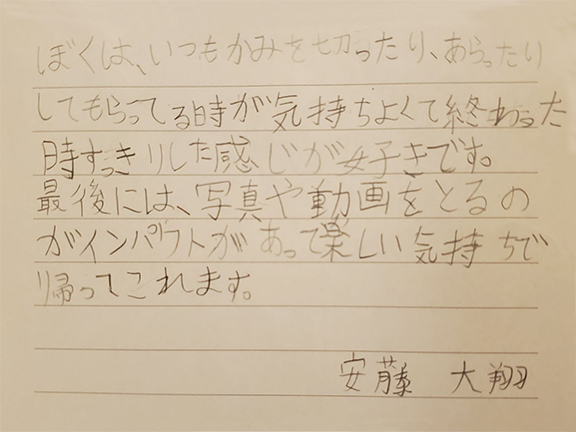 ぼくは、いつもかみを切ったり、あらったり
してもらってる時が気持ちよくて終わった
時すっきりした感じが好きです。
最後には、写真や動画をとるの
がインパクトがあって楽しい気持ちで
帰ってこれます。
安藤 大翔